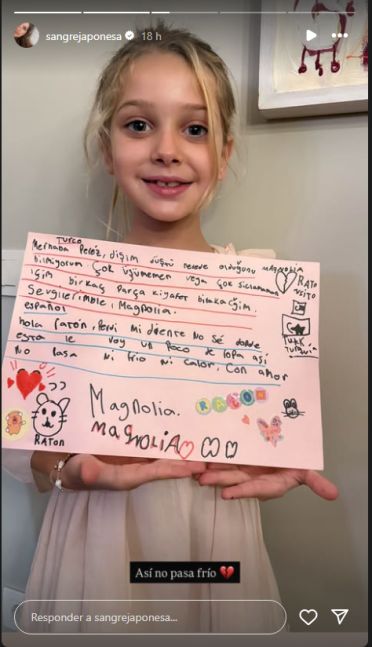 sangrejaponesa 18 h
TURCO
Merhaba Peréz, dişim düştü nerede olduğunu
bilmiyorum Çok üşümemen veya Çok sıcaklamaman
için birkaç parça kıyafet bırakacağım.
Sevgilerimle, Magnolia.
MAGNOLIA
RATO
NSITO
TURK
español
hola ratón, Perdí mi diente No Sé donde
esta le voy un Poco de ropa así
No Pasa Ni frio Ni calor, Con amor
Magnolia.
RATON
MAGNOLIA
RATON
Así no pasa frío 💔
Responder a sangrejaponesa...